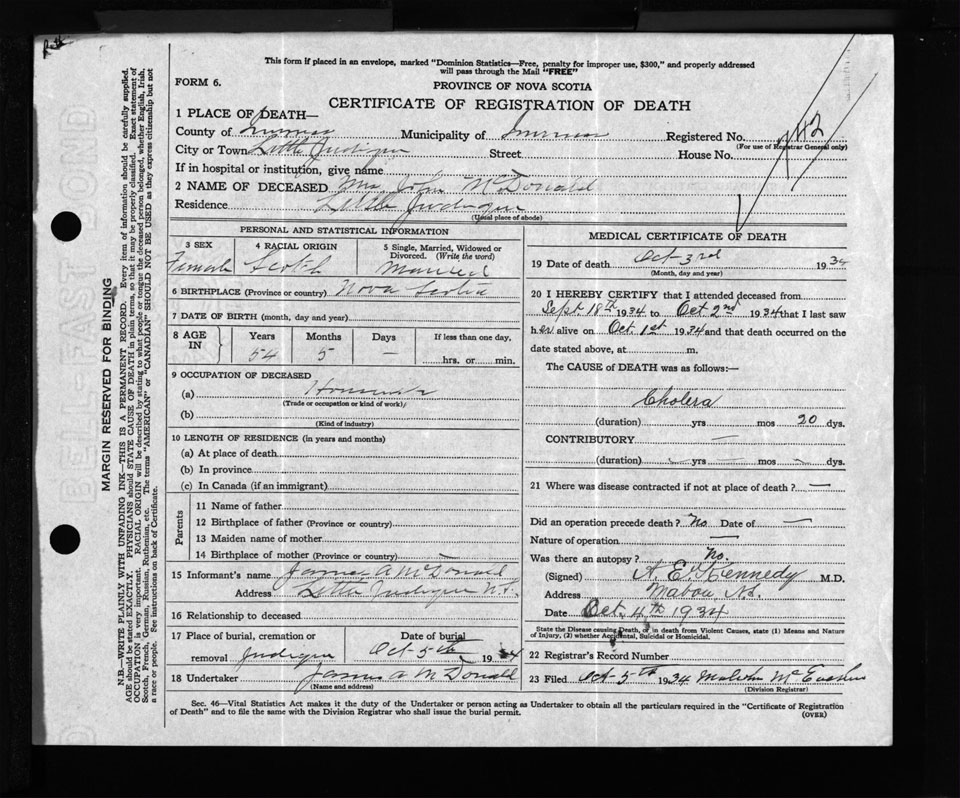 This form if placed in an envelope, marked "Dominion Statistics—Free, penalty for improper use, $300," and properly addressed
will pass through the Mail "FREE"
FORM 6.
PROVINCE OF NOVA SCOTIA
CERTIFICATE OF REGISTRATION OF DEATH
1 PLACE OF DEATH—
County of Inverness Municipality of Inverness Registered No. 742
(For use of Registrar General only)
City or Town Little Judique Street House No.
If in hospital or institution, give name
2 NAME OF DECEASED Mrs. John McDonald
Residence Little Judique
(Usual place of abode)
PERSONAL AND STATISTICAL INFORMATION
3 SEX 4 RACIAL ORIGIN 5 Single, Married, Widowed or
Divorced. (Write the word)
Female Scotch Married
6 BIRTHPLACE (Province or country) Nova Scotia
7 DATE OF BIRTH (month, day and year)
8 AGE IN Years Months Days If less than one day,
54 5 — hrs. or min.
9 OCCUPATION OF DECEASED
(a)
(Trade or occupation or kind of work)
(b)
(Kind of industry)
10 LENGTH OF RESIDENCE (in years and months)
(a) At place of death
(b) In province
(c) In Canada (if an immigrant)
Parents
11 Name of father
12 Birthplace of father (Province or country)
13 Maiden name of mother
14 Birthplace of mother (Province or country) —
15 Informant's name James A McDonald
Address Little Judique N.S.
16 Relationship to deceased
17 Place of burial, cremation or Date of burial
removal Judique Oct 5th 1934
18 Undertaker James A McDonald
(Name and address)
MEDICAL CERTIFICATE OF DEATH
19 Date of death Oct 3rd 1934
(Month, day and year)
20 I HEREBY CERTIFY that I attended deceased from
Sept 18th 1934 to Oct 2nd 1934 that I last saw
her alive on Oct. 1st 1934 and that death occurred on the
date stated above, at m.
The CAUSE of DEATH was as follows:—
Cholera
(duration) yrs mos 20 dys.
CONTRIBUTORY —
(duration) — yrs — mos — dys.
21 Where was disease contracted if not at place of death? —
Did an operation precede death? No Date of —
Nature of operation —
Was there an autopsy? No.
(Signed) A. E. Kennedy M.D.
Address Mabou, N.S.
Date Oct. 4th 1934
State the Disease causing Death, or in death from Violent Causes, state (1) Means and Nature
of Injury, (2) whether Accidental, Suicidal or Homicidal.
22 Registrar's Record Number
23 Filed Oct 5th 1934 Malcolm
(Division Registrar)
Sec. 46—Vital Statistics Act makes it the duty of the Undertaker or person acting as Undertaker to obtain all the particulars required in the "Certificate of Registration
of Death" and to file the same with the Division Registrar who shall issue the burial permit.
(OVER)
MARGIN RESERVED FOR BINDING
N.B.—WRITE PLAINLY WITH UNFADING INK—THIS IS A PERMANENT RECORD. Every item of information should be carefully supplied.
AGE should be stated EXACTLY. PHYSICIANS should STATE CAUSE OF DEATH in plain terms, so that it may be properly classified. Exact statement of
OCCUPATION is very important. RACIAL ORIGIN will be described by stating to what people or tongue the deceased person belonged, whether English, Irish,
Scotch, French, German, Russian, Ruthenian, etc. The terms "AMERICAN" or "CANADIAN" SHOULD NOT BE USED as they express citizenship but not
a race or people. See instructions on back of Certificate.
BELL-FAST BOND